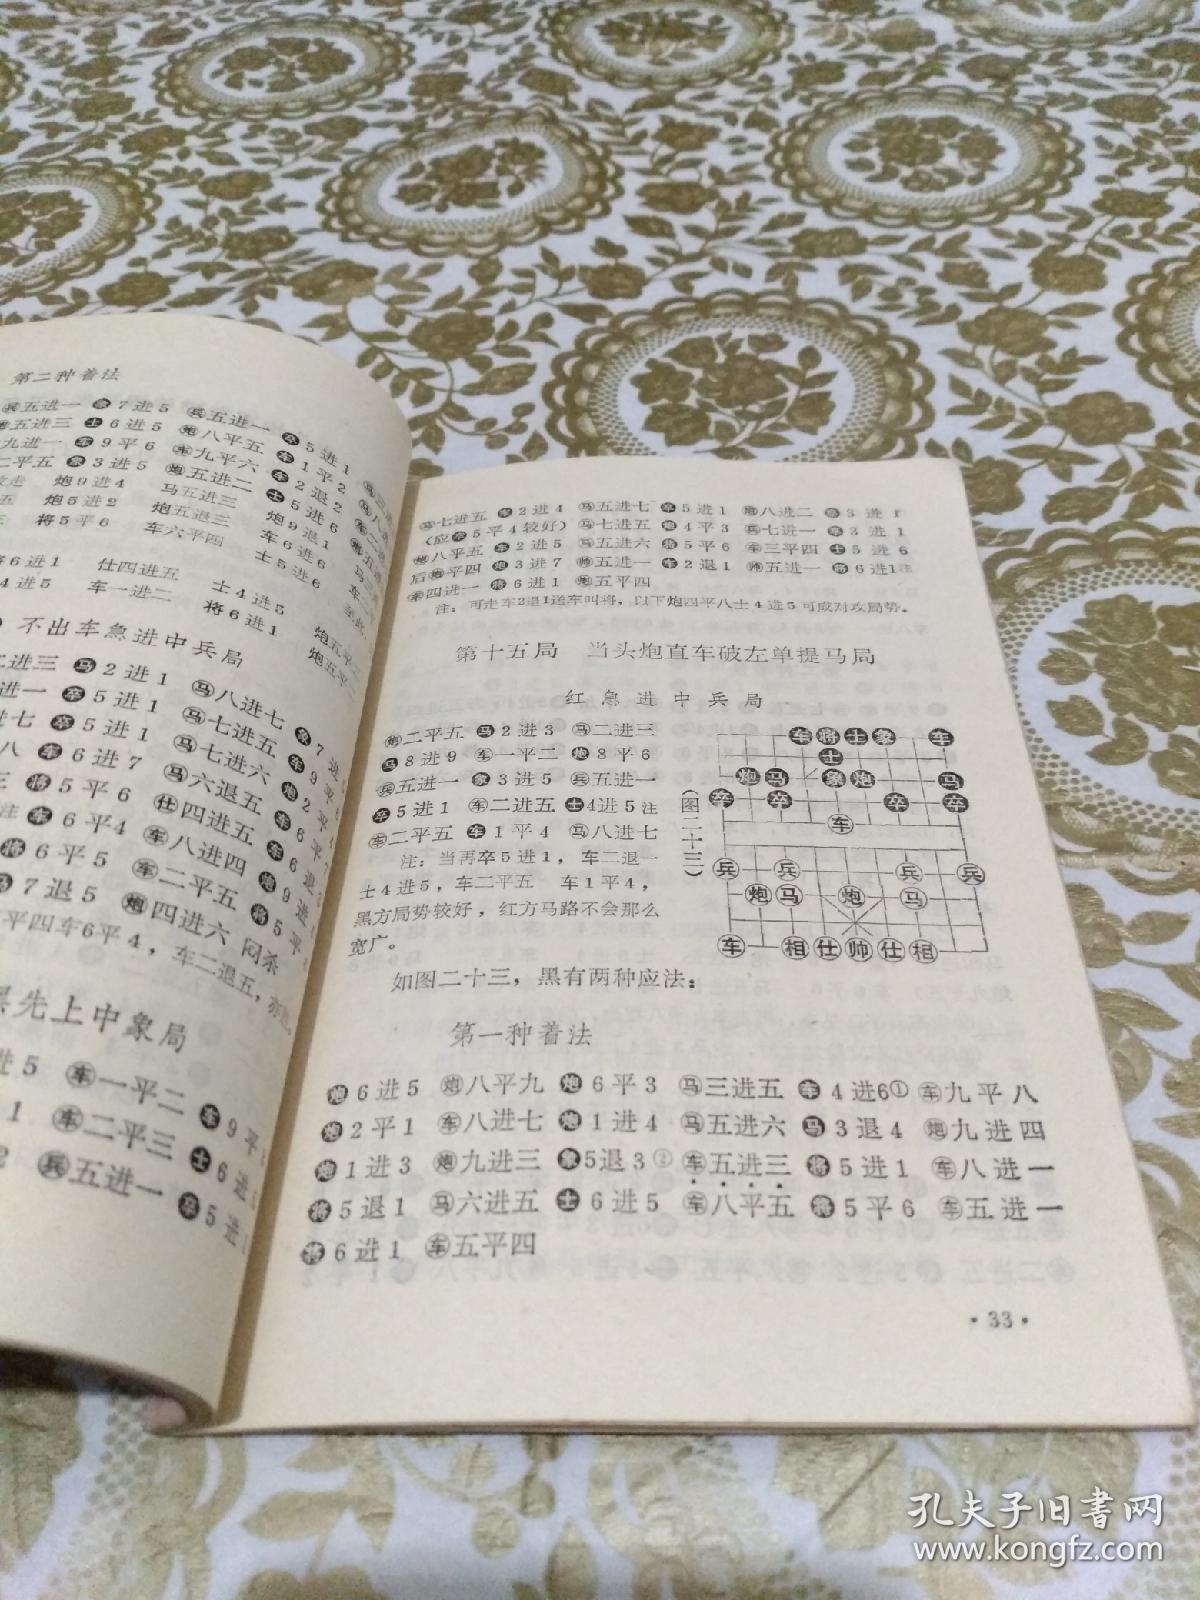 第二种着法
兵五进一 象7进5 兵五进一 卒5进1
炮五进三 士6进5 炮八平五 车1平2
九进一 车9平6 车九平六 车2退2
二平五 象3进5 炮五进二 士5进6
走 炮9进4 马五进三 炮9退1
五 炮5进2 炮五退三 车6进6
将5平6 车六平四 士5进6
将6进1 仕四进五 士4进5 炮五平二
4进5 车一进二 将6进1 炮五平二
不出车急进中兵局
二进三 马2进1 马八进七 象7进
进一 卒5进1 马七进五 车9平
进七 卒5进1 马七进六 炮2平
八 车6进7 马六退五 车6平
三 将5平6 仕四进五 车6退
注 车6平4 车八进四 炮9进
将6平5 车二平五 将5平
马7退5 炮四进六 闷杀
平四车6平4，车二退五，亦
黑先上中象局
进5 车一平二 车9平
1 车二平三 士6进5
2 兵五进一 卒5进1
马七进五 车2进4 马五进七 卒5进1 炮八进二 卒3进1
（应卒5平4较好）马七进五 炮4平3 兵七进一 象3进1
炮八平五 车2进5 马五进六 将5平6 车三平四 士5进6
后炮平四 炮3进7 帅五进一 车2退1 帅五进一 将6进1注
车四进一 将6进1 炮五平四
注：可走车2退1送车叫将，以下炮四平八士4进5可成对攻局势。
第十五局 当头炮直车破左单提马局
红急进中兵局
炮二平五 马2进3 马二进三
马8进9 车一平二 炮8平6
兵五进一 象3进5 兵五进一
卒5进1 车二进五 士4进5注
车二平五 车1平4 马八进七
注：当再卒5进1，车二退一
士4进5，车二平五 车1平4，
黑方局势较好，红方马路不会那么
宽广。
（图二十三）
车将士象车
士
炮马象炮马
卒卒卒卒
车
兵兵兵兵
炮马炮马
车相仕帅仕相
如图二十三，黑有两种应法：
第一种着法
炮6进5 炮八平九 炮6平3 马三进五 车4进6① 车九平八
炮2平1 车八进七 炮1进4 马五进六 马3退4 炮九进四
炮1进3 炮九进三 象5退3② 车五进三 将5进1 车八进一
将5退1 马六进五 士6进5 车八平五 将5平6 车五进一
将6进1 车五平四
·33·
孔夫子旧书网
www.kongfz.com